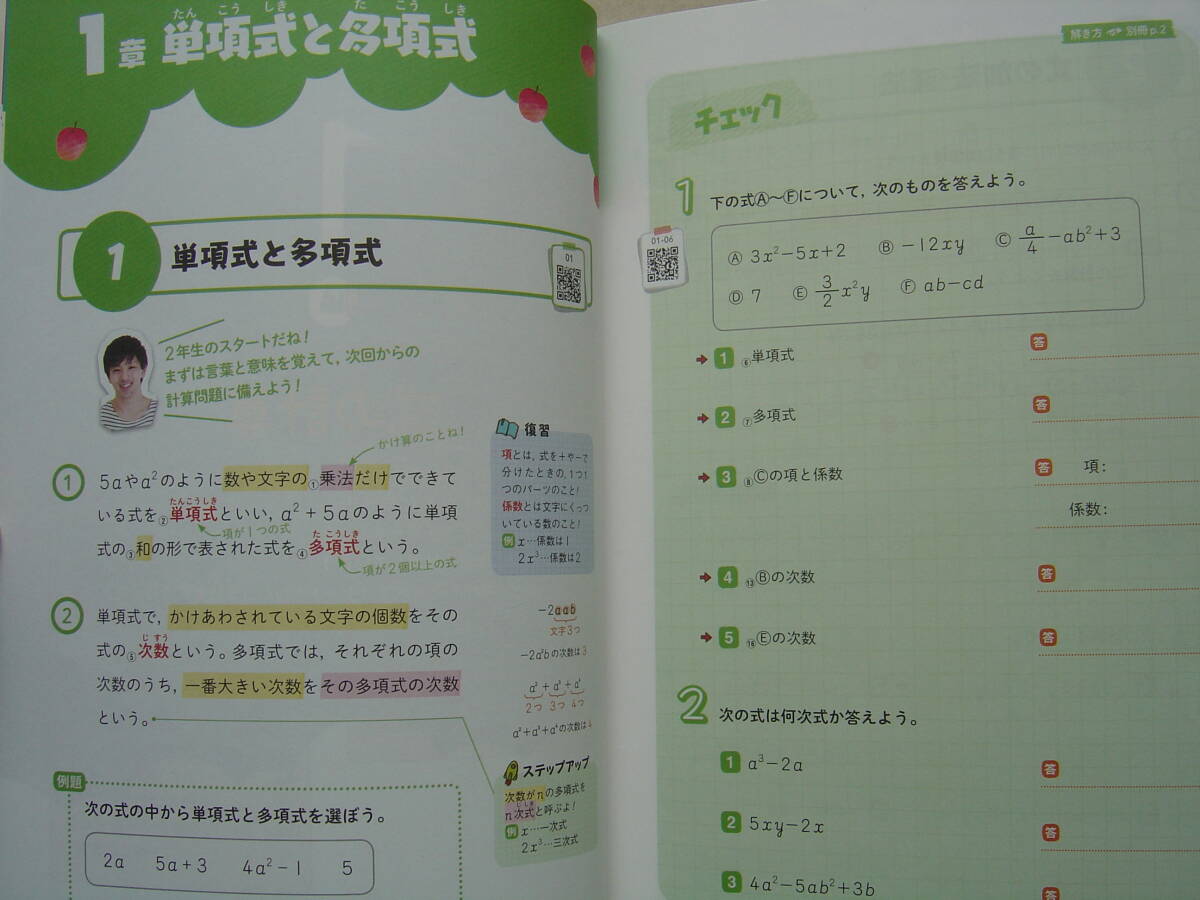 たん こう しき た こう しき
1章 単項式と多項式
1 単項式と多項式
01
2年生のスタートだね!
まずは言葉と意味を覚えて，次回からの
計算問題に備えよう!
かけ算のことね!
① 5aやa²のように数や文字の①乗法だけでできて
たんこうしき
いる式を②単項式といい，a²+5aのように単項
項が1つの式
た こうしき
式の③和の形で表された式を④多項式という。
項が2個以上の式
② 単項式で，かけあわされている文字の個数をその
じ すう
式の⑤次数という。多項式では，それぞれの項の
次数のうち，一番大きい次数をその多項式の次数
という。
復習
項とは，式を+や−で
分けたときの，1つ1
つのパーツのこと!
係数とは文字にくっつ
いている数のこと!
例 x…係数は1
2x³…係数は2
−2aab
文字3つ
−2a²bの次数は3
a²+a³+a⁴
2つ 3つ 4つ
a²+a³+a⁴の次数は4
ステップアップ
次数がnの多項式を
じ しき
n次式と呼ぶよ!
例 x…一次式
2x³…三次式
例題
次の式の中から単項式と多項式を選ぼう。
2a 5a+3 4a²−1 5
解き方 別冊p.2
チェック
1 下の式Ⓐ〜Ⓕについて，次のものを答えよう。
01-06
Ⓐ 3x²−5x+2 Ⓑ −12xy Ⓒ a/4−ab²+3
Ⓓ 7 Ⓔ 3/2x²y Ⓕ ab−cd
1 ⑥単項式 答
2 ⑦多項式 答
3 ⑧Ⓒの項と係数 答 項:
係数:
4 ⑬Ⓑの次数 答
5 ⑯Ⓔの次数 答
2 次の式は何次式か答えよう。
1 a³−2a 答
2 5xy−2x 答
3 4a²−5ab²+3b 答